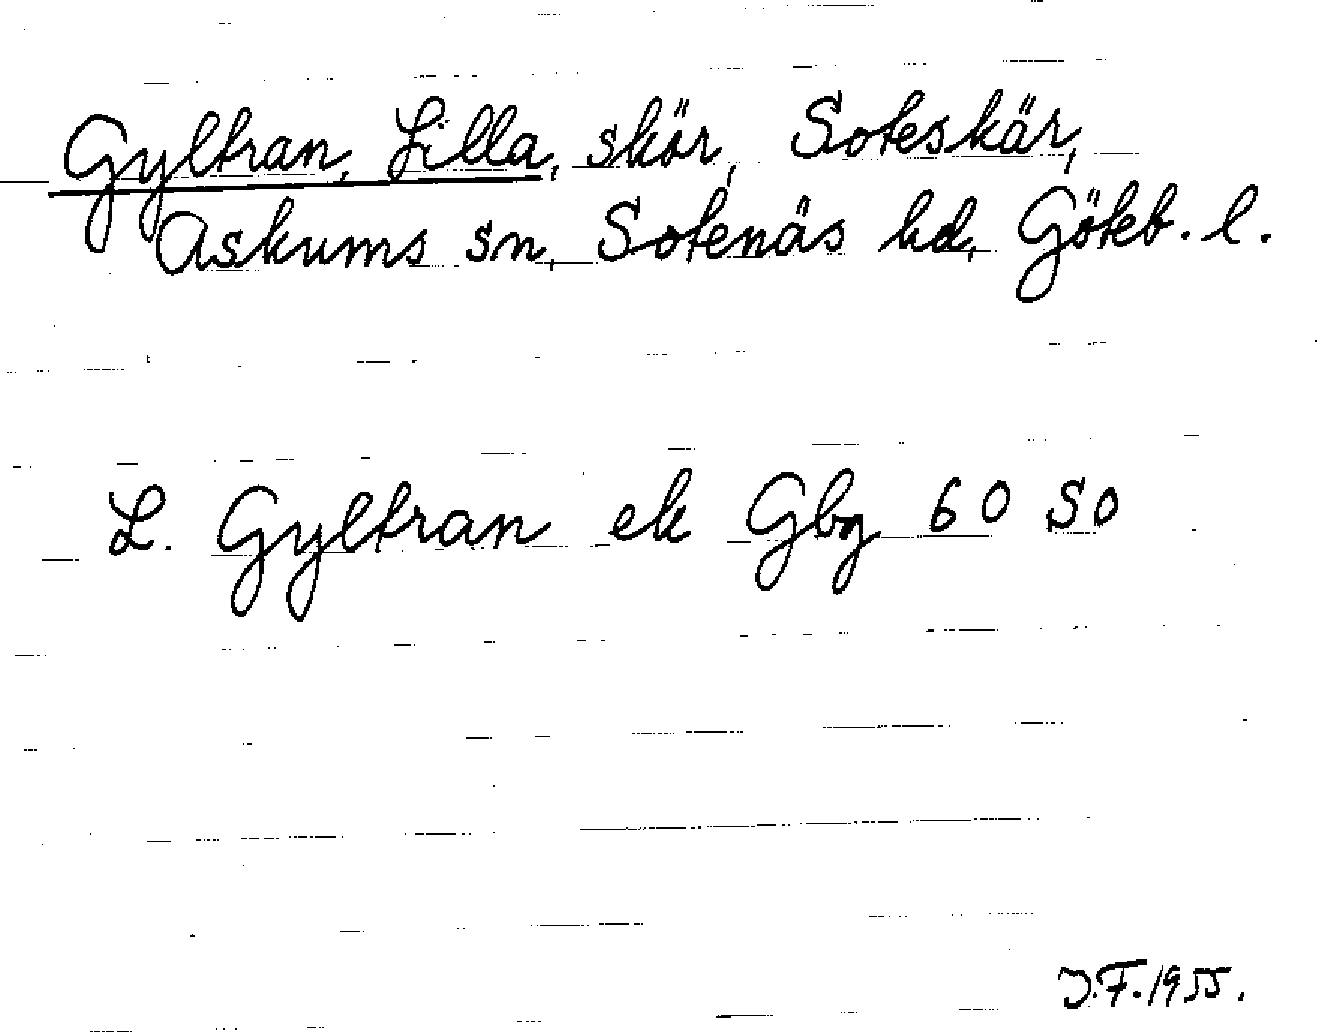 Gyltran, Lilla, skär, Soteskär,
Askums sn, Sotenäs hd, Göteb. l.
L. Gyltran ek Gbg 60 SO
J.F. 1955.